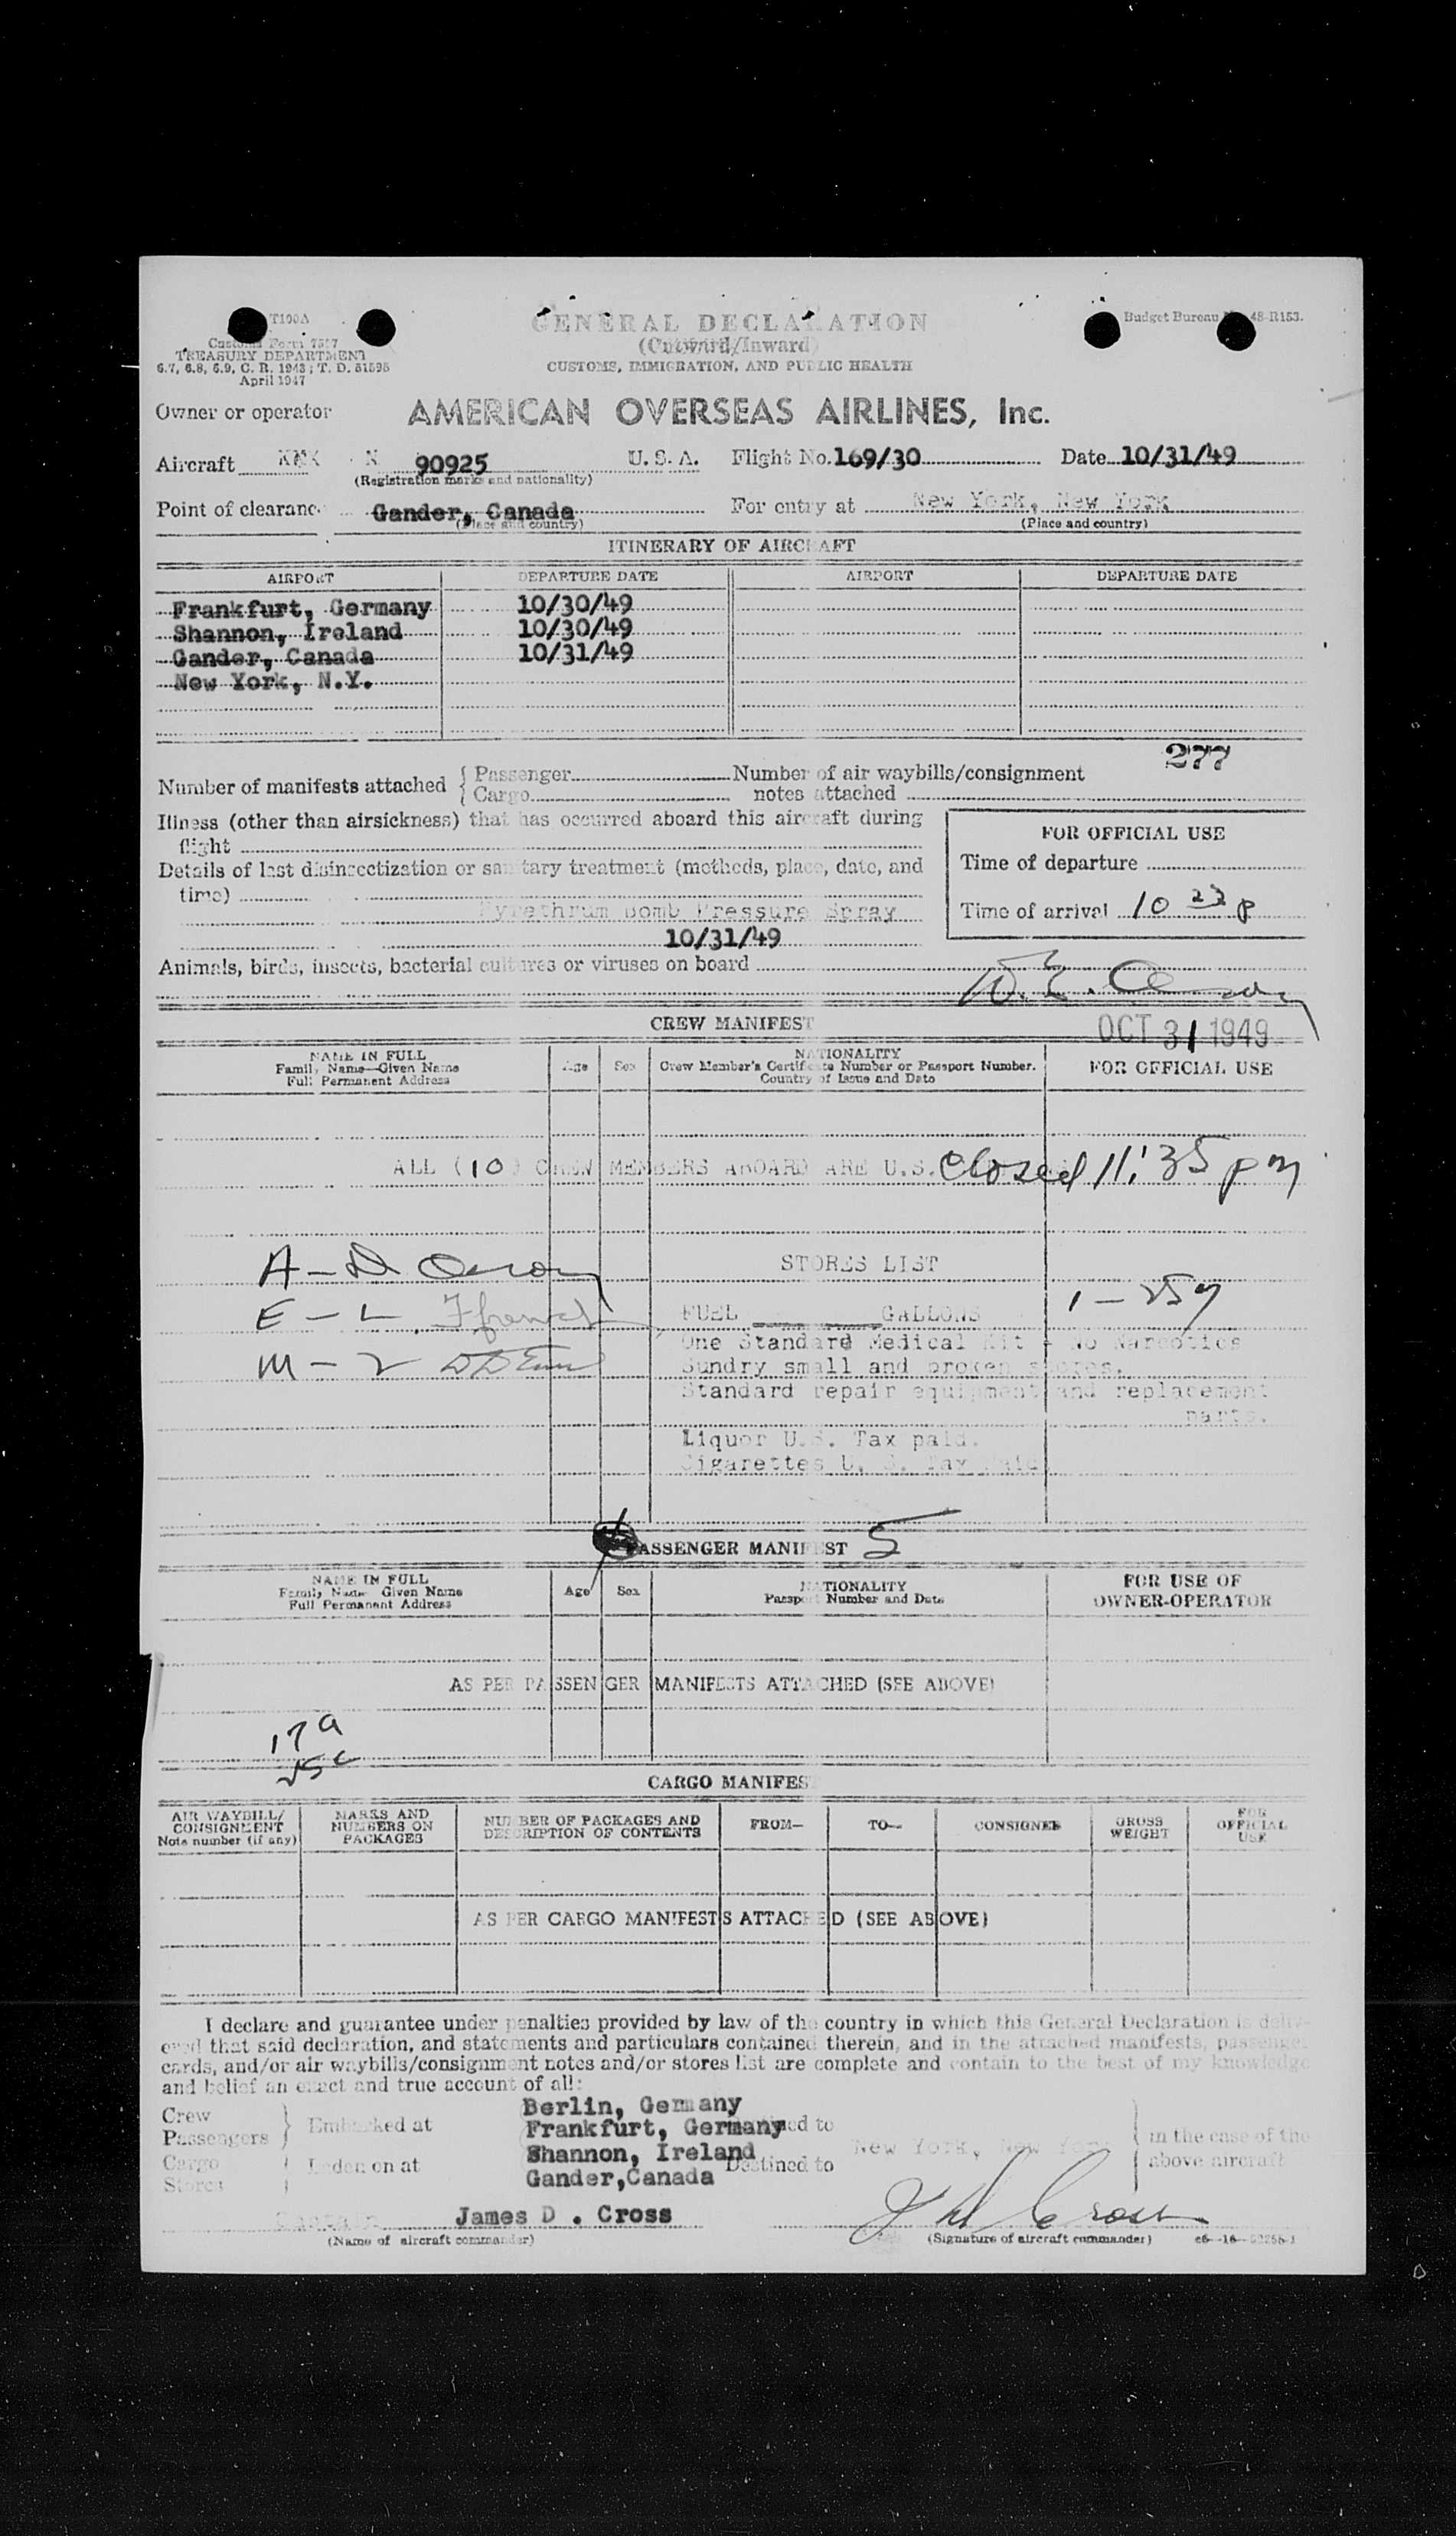 T100A
Customs Form 7507
TREASURY DEPARTMENT
6.7, 6.8, 6.9, C. R. 1943; T. D. 51595
April 1947
GENERAL DECLARATION
(Outward/Inward)
CUSTOMS, IMMIGRATION, AND PUBLIC HEALTH
Budget Bureau No. 48-R153.
Owner or operator AMERICAN OVERSEAS AIRLINES, Inc.
Aircraft N 90925 U. S. A. Flight No. 169/30 Date 10/31/49
(Registration marks and nationality)
Point of clearance Gander, Canada For entry at New York, New York
(Place and country) (Place and country)
ITINERARY OF AIRCRAFT
AIRPORT DEPARTURE DATE AIRPORT DEPARTURE DATE
Frankfurt, Germany 10/30/49
Shannon, Ireland 10/30/49
Gander, Canada 10/31/49
New York, N.Y.
277
Number of manifests attached { Passenger Number of air waybills/consignment
Cargo notes attached
Illness (other than airsickness) that has occurred aboard this aircraft during
flight
Details of last disinsectization or sanitary treatment (methods, place, date, and
time)
Pyrethrum Bomb Pressure Spray
10/31/49
FOR OFFICIAL USE
Time of departure
Time of arrival 10 23 p
Animals, birds, insects, bacterial cultures or viruses on board
W. E.
CREW MANIFEST
OCT 31 1949
NAME IN FULL
Family Name—Given Name
Full Permanent Address
Age
Sex
NATIONALITY
Crew Member's Certificate Number or Passport Number.
Country of Issue and Date
FOR OFFICIAL USE
ALL (10) CREW MEMBERS ABOARD ARE U.S. Closed 11:35 pm
A - D
STORES LIST
E - L
FUEL GALLONS 1 - 257
One Standard Medical Kit - No Narcotics
M - 2
Sundry small and broken stores.
Standard repair equipment and replacement
parts.
Liquor U.S. Tax paid.
Cigarettes U. S. Tax Paid
PASSENGER MANIFEST 5
NAME IN FULL
Family Name Given Name
Full Permanent Address
Age
Sex
NATIONALITY
Passport Number and Date
FOR USE OF
OWNER-OPERATOR
AS PER PASSENGER MANIFESTS ATTACHED (SEE ABOVE)
17a
25c
CARGO MANIFEST
AIR WAYBILL/
CONSIGNMENT
Note number (if any)
MARKS AND
NUMBERS ON
PACKAGES
NUMBER OF PACKAGES AND
DESCRIPTION OF CONTENTS
FROM—
TO—
CONSIGNEE
GROSS
WEIGHT
FOR
OFFICIAL
USE
AS PER CARGO MANIFESTS ATTACHED (SEE ABOVE)
I declare and guarantee under penalties provided by law of the country in which this General Declaration is deliv-
ered that said declaration, and statements and particulars contained therein, and in the attached manifests, passenger
cards, and/or air waybills/consignment notes and/or stores list are complete and contain to the best of my knowledge
and belief an exact and true account of all:
Berlin, Gemany
Crew
Passengers } Embarked at Frankfurt, Germany Destined to
Shannon, Ireland New York, New York { in the case of the
Cargo
Stores } Laden on at Gander,Canada Destined to above aircraft
Captain James D . Cross J D Cross
(Name of aircraft commander) (Signature of aircraft commander)